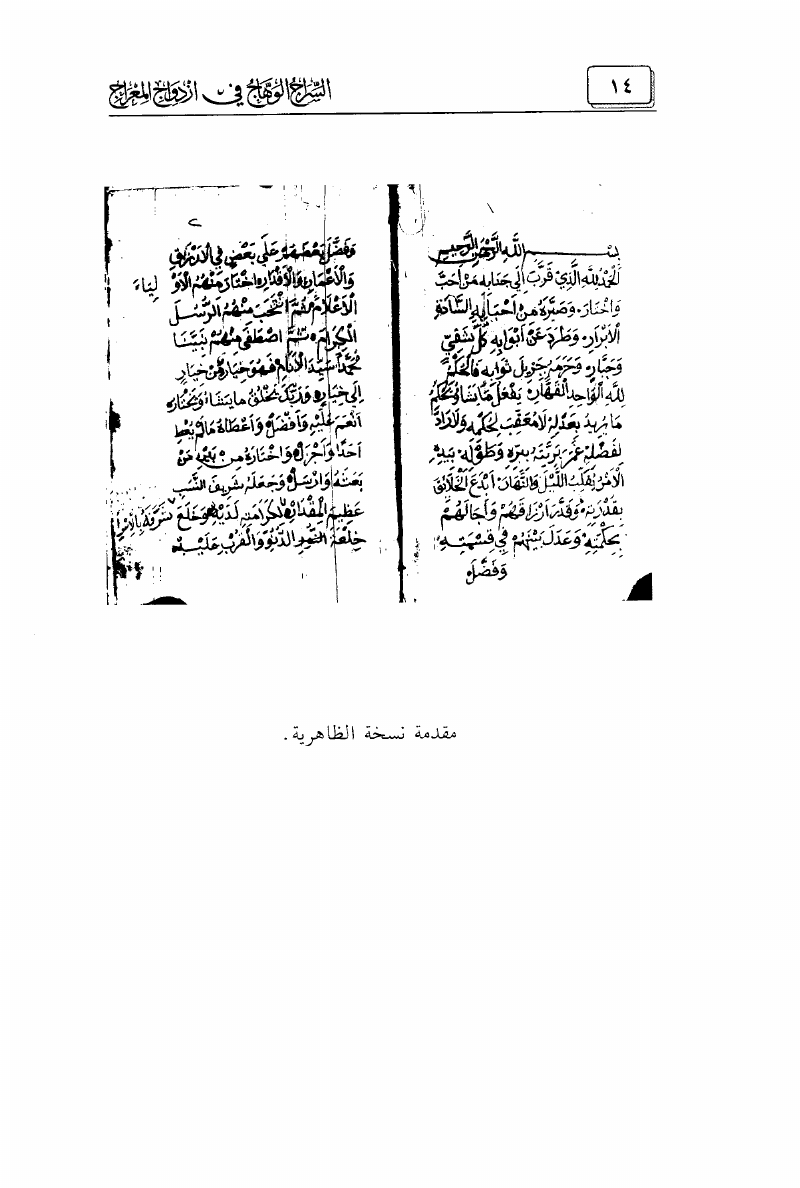 ١٤
السراج الوهاج في ازدواج المعراج
١
بسم الله الرحمن الرحيم
الحمد لله الذي قرب إلى جنابه من أحب
واختاره وصيره من أحبابه السادة
الأبرار وطرد عن أبوابه كل شقي
وجبار وحرمه جزيل ثوابه فالحكم
لله الواحد القهار يفعل ما يشاء ويحكم
ما يريد بعدله لا معقب لحكمه ولا راد
لفضله عم بريته ببره وطوله بيده
الأمر يقلب الليل والنهار أبدع الخلائق
بقدرته وقدر أرزاقهم وآجالهم
بحكمته وعدل بينهم في قسمته
وفضل
٢
وفضل بعضهم على بعض في الأرزاق
والأعمار والأقدار اختار منهم الأولياء
الأعلام ثم انتخب منهم الرسل
الكرام ثم اصطفى منهم نبينا
محمدا سيد الأنام فهو خيار من خيار
إلى خيار وربك يخلق ما يشاء ويختار
أنعم عليه وأفضل وأعطاه ما لم يعط
أحدا وأجزل واختاره من
بعثه وأرسل وجعله شريف النسب
عظيم المقدار لكرامته لديه وخلع
خلعة الدنو والقرب عليه
مقدمة نسخة الظاهرية.